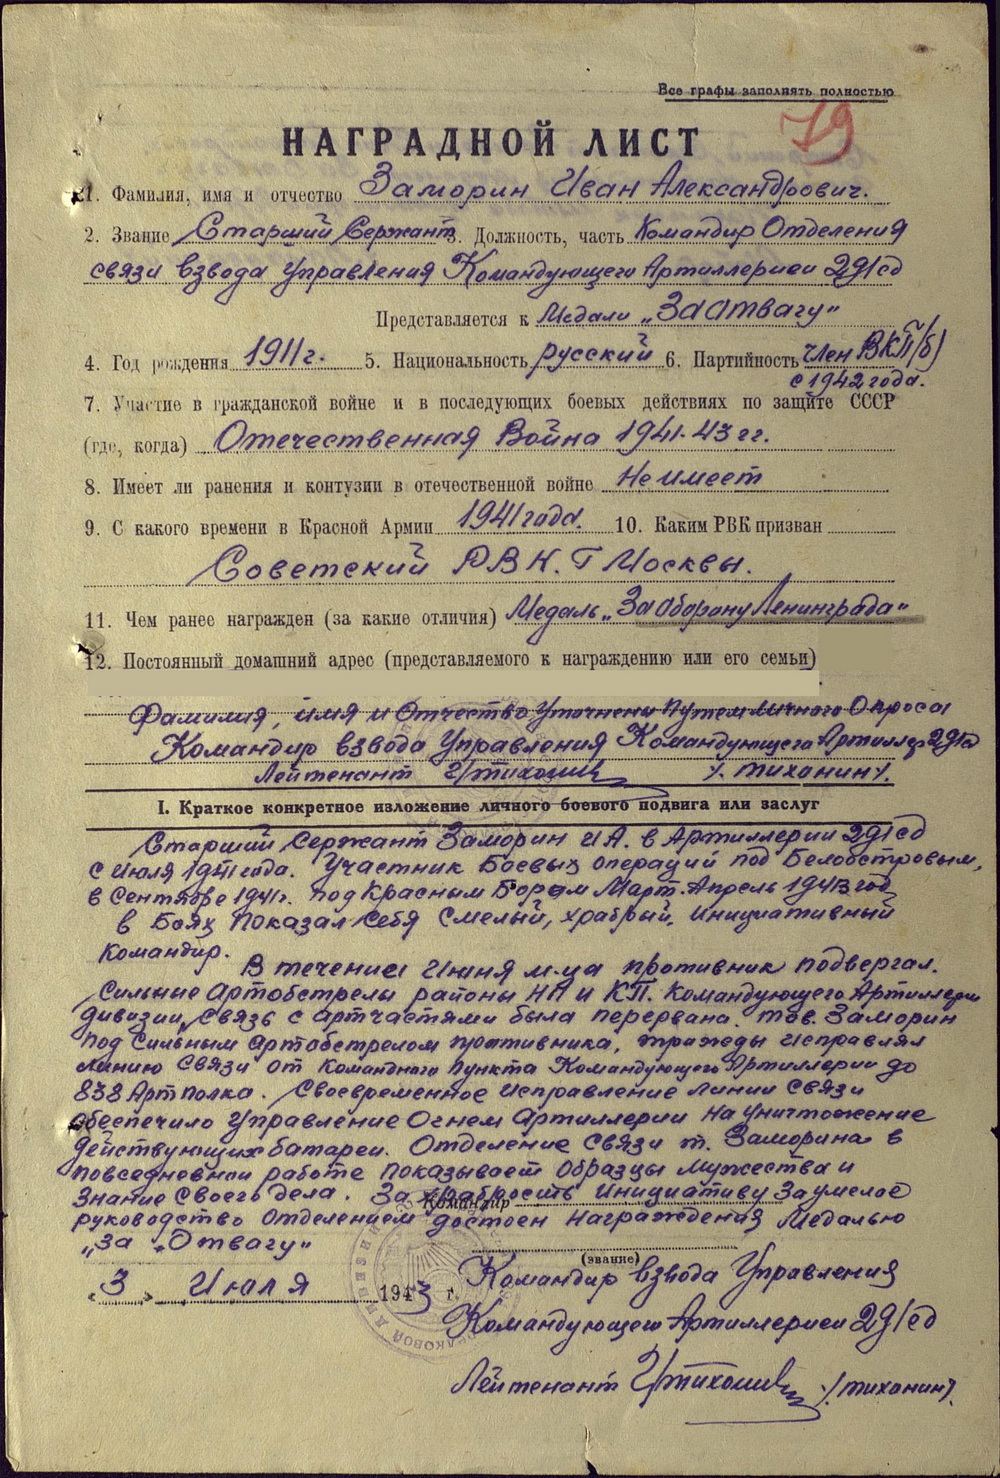 Все графы заполнять полностью
79
НАГРАДНОЙ ЛИСТ
1. Фамилия, имя и отчество Заморин Иван Александрович.
2. Звание Старший Сержант 3. Должность, часть Командир Отделения
связи взвода Управления Командующего Артиллериеи 291сд
Представляется к Медали „За Отвагу"
4. Год рождения 1911 г. 5. Национальность русский 6. Партийность член ВКП(б)
с 1942 года.
7. Участие в гражданской войне и в последующих боевых действиях по защите СССР
(где, когда) Отечественная Война 1941-43 гг.
8. Имеет ли ранения и контузии в отечественной войне Не имеет
9. С какого времени в Красной Армии 1941 года. 10. Каким РВК призван
Советский РВК. Г Москвы.
11. Чем ранее награжден (за какие отличия) Медаль „За оборону Ленинграда"
12. Постоянный домашний адрес (представляемого к награждению или его семьи)
Фамилия, имя и Отчество Уточнены Путем личного Опроса
Командир взвода Управления Командующего Артиллер 291сд
Лейтенант /Тиханин/.
I. Краткое конкретное изложение личного боевого подвига или заслуг
Старший Сержант Заморин И.А. в Артиллерии 291сд
с Июля 1941 года. Участник Боевых операций под Белоостровым,
в Сентябре 1941г. под Красным Бором Март-Апрель 1943 год
в Боях показал себя смелый, храбрый, инициативный
командир.
В течении Июня м-ца противник подвергал.
сильные Артобстрелы районы НП и КП. Командующего Артиллери
дивизии, связь с артчастями была перервана. тов. Заморин
под сильным Артобстрелом противника, трижды исправлял
линию связи от Командного пункта Командующего Артиллерии до
838 Артполка. Своевременное исправление линии связи
обеспечило Управление Огнем Артиллерии на уничтожение
действующих батареи. Отделение связи т. Заморина в
повседневнои работе показывает образцы мужества и
знание своего дела. За храбрость инициативу За умелое
Командир
руководство отделением достоен награждения Медалью
„За „Отвагу"
(звание)
„3" Июля 1943 г. Командир взвода Управления
Командующего Артиллериеи 291сд
Лейтенант /Тиханин/.